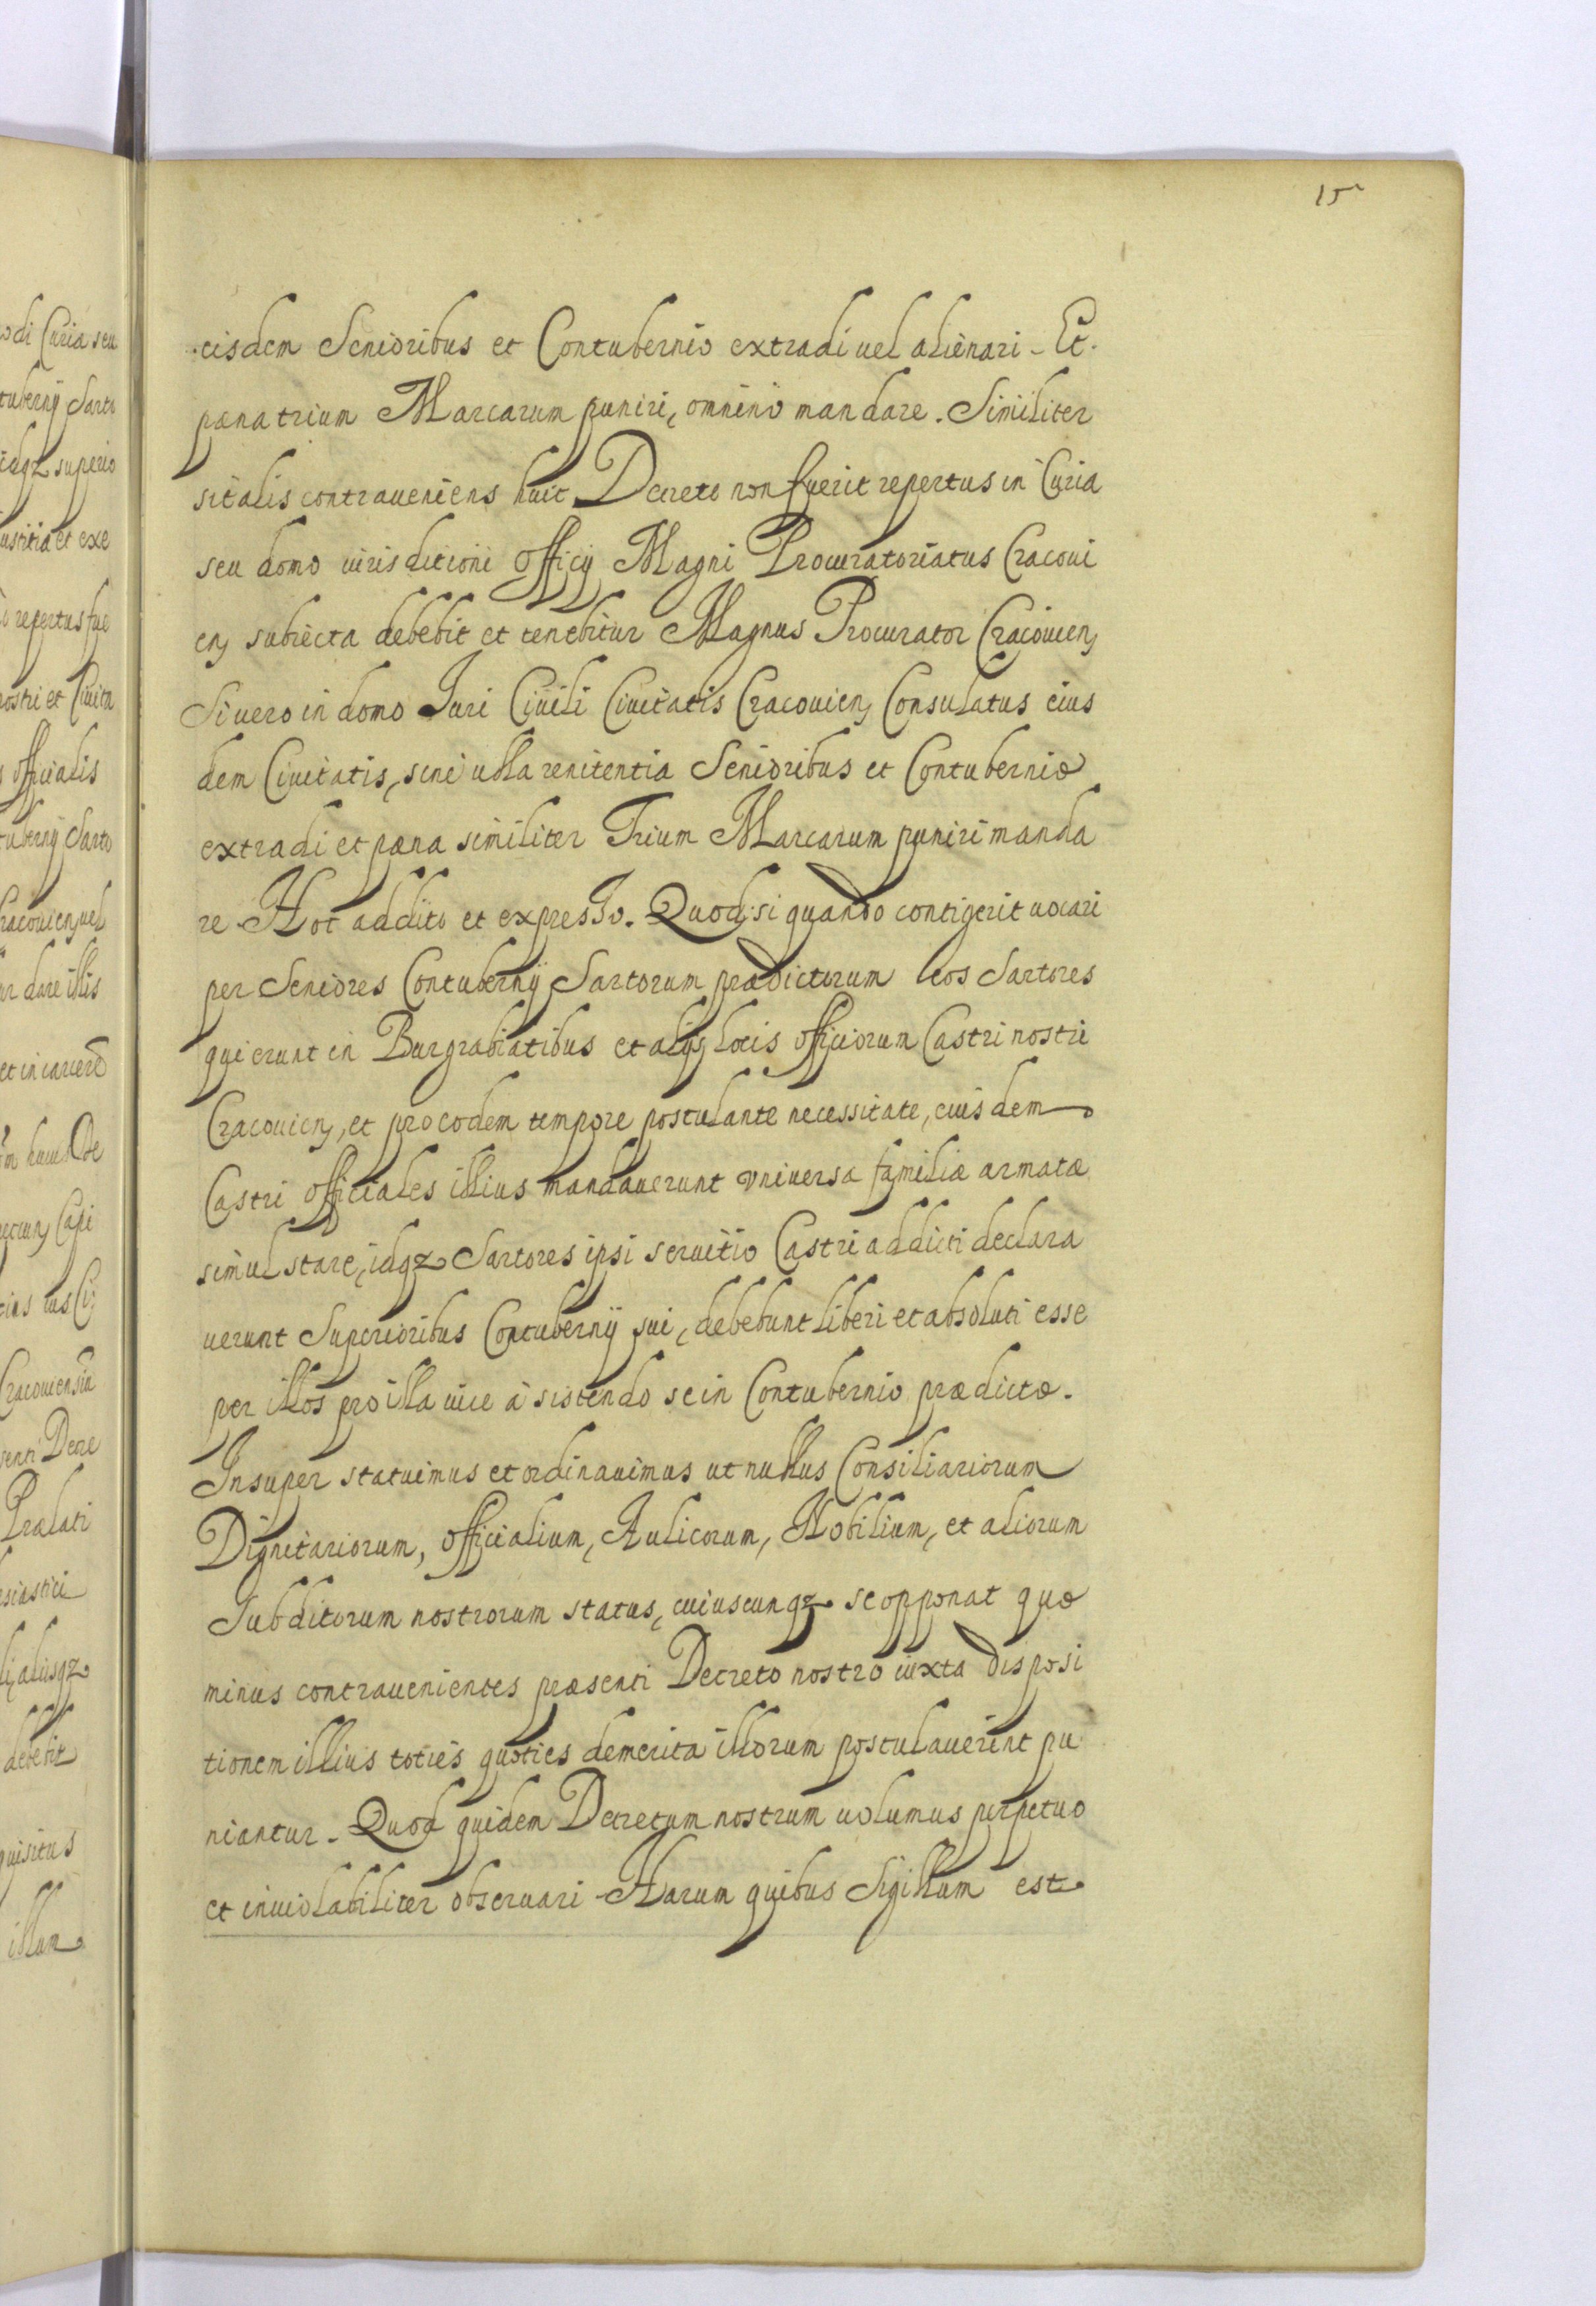 15
eisdem Senioribus et Contubernio extradi uel alienari - Et
pœna trium Marcarum puniri, omnino mandare. Similiter
si talis contraueniens huic Decreto non fuerit repertus in Curia
seu domo iurisditioni Officij Magni Procuratoriatus Cracoui
en, subiecta debebit et tenebitur Magnus Procurator Cracouien,
Si uero in domo Juri Ciuili Ciuitatis Cracouien, Consulatus eius
dem Ciuitatis, sine ulla renitentia Senioribus et Contubernio
extradi et pœna similiter Trium Marcarum puniri manda
re Hoc addito et expresso. Quod si quando contigerit uocari
per Seniores Contubernij Sartorum prædictorum eos Sartores
qui erunt in Burgrabiatibus et alijs locis Officiorum Castri nostri
Cracouien, et pro eodem tempore postulante necessitate, eiusdem
Castri Officiales illius mandauerunt vniversæ familiæ armatæ
simul stare, idqz Sartores ipsi seruitio Castri addicti declara
uerunt Superioribus Contubernij sui, debebunt liberi et absoluti esse
per illos pro illa uice à sistendo se in Contubernio prædicto.
Insuper statuimus et ordinauimus ut nullus Consiliariorum
Dignitariorum, Officialium, Aulicorum, Nobilium, et aliorum
Subditorum nostrorum status, cuiuscunqz se opponat quo
minus contrauenientes præsenti Decreto nostro iuxta disposi
tionem illius toties quoties demerita illorum postulauerint pu
niantur. Quod quidem Decretum nostrum uolumus perpetuo
et inuiolabiliter obseruari Harum quibus Sigillum est